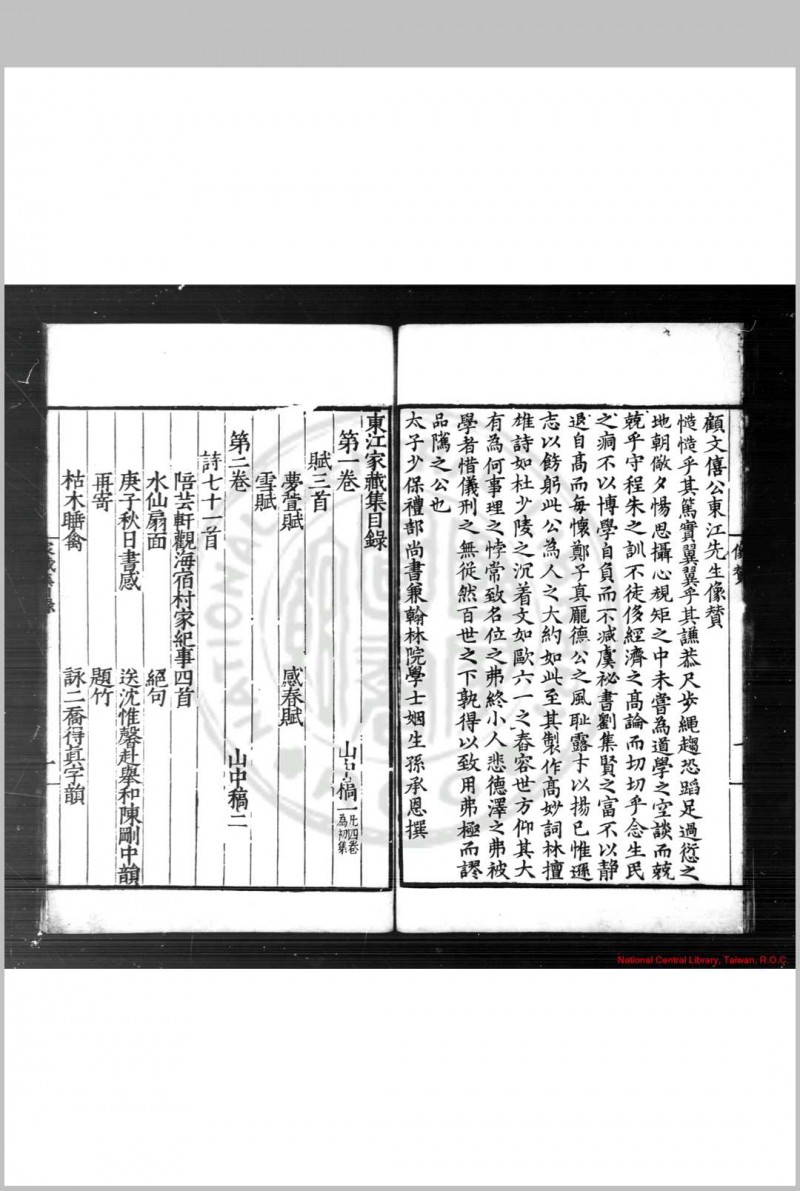 顧文僖公東江先生像贊
慥慥乎其篤實翼翼乎其謙恭尺步繩趨恐蹈足過愆之
地朝儆夕惕思攝心規矩之中未嘗為道學之空談而兢
兢乎守程朱之訓不徒侈經濟之高論而切切乎念生民
之痌不以博學自負而不減虞祕書劉集賢之富不以靜
退自高而每懷鄭子真龐德公之風恥露才以揚已惟遜
志以餝躬此公為人之大約如此至其製作高妙詞林擅
雄詩如杜少陵之沉着文如歐六一之舂容世方仰其大
有為何事理之悖常致名位之弗終小人悲德澤之弗被
學者惜儀刑之無從然百世之下孰得以致用弗極而謬
品隲之公也
太子少保禮部尚書兼翰林院學士姻生孫承恩撰
像贊
東江家藏集目錄
第一卷 山中稿一 凡四卷為初集
賦三首
夢萱賦 感春賦
雪賦
第二卷 山中稿二
詩七十一首
陪芸軒觀海宿村家紀事四首
水仙扇面 絕句
庚子秋日書感 送沈惟馨赴舉和陳剛中韻
再寄 題竹
枯木聯禽 詠二喬得真字韻
National Central Library, Taiwan, R.O.C.